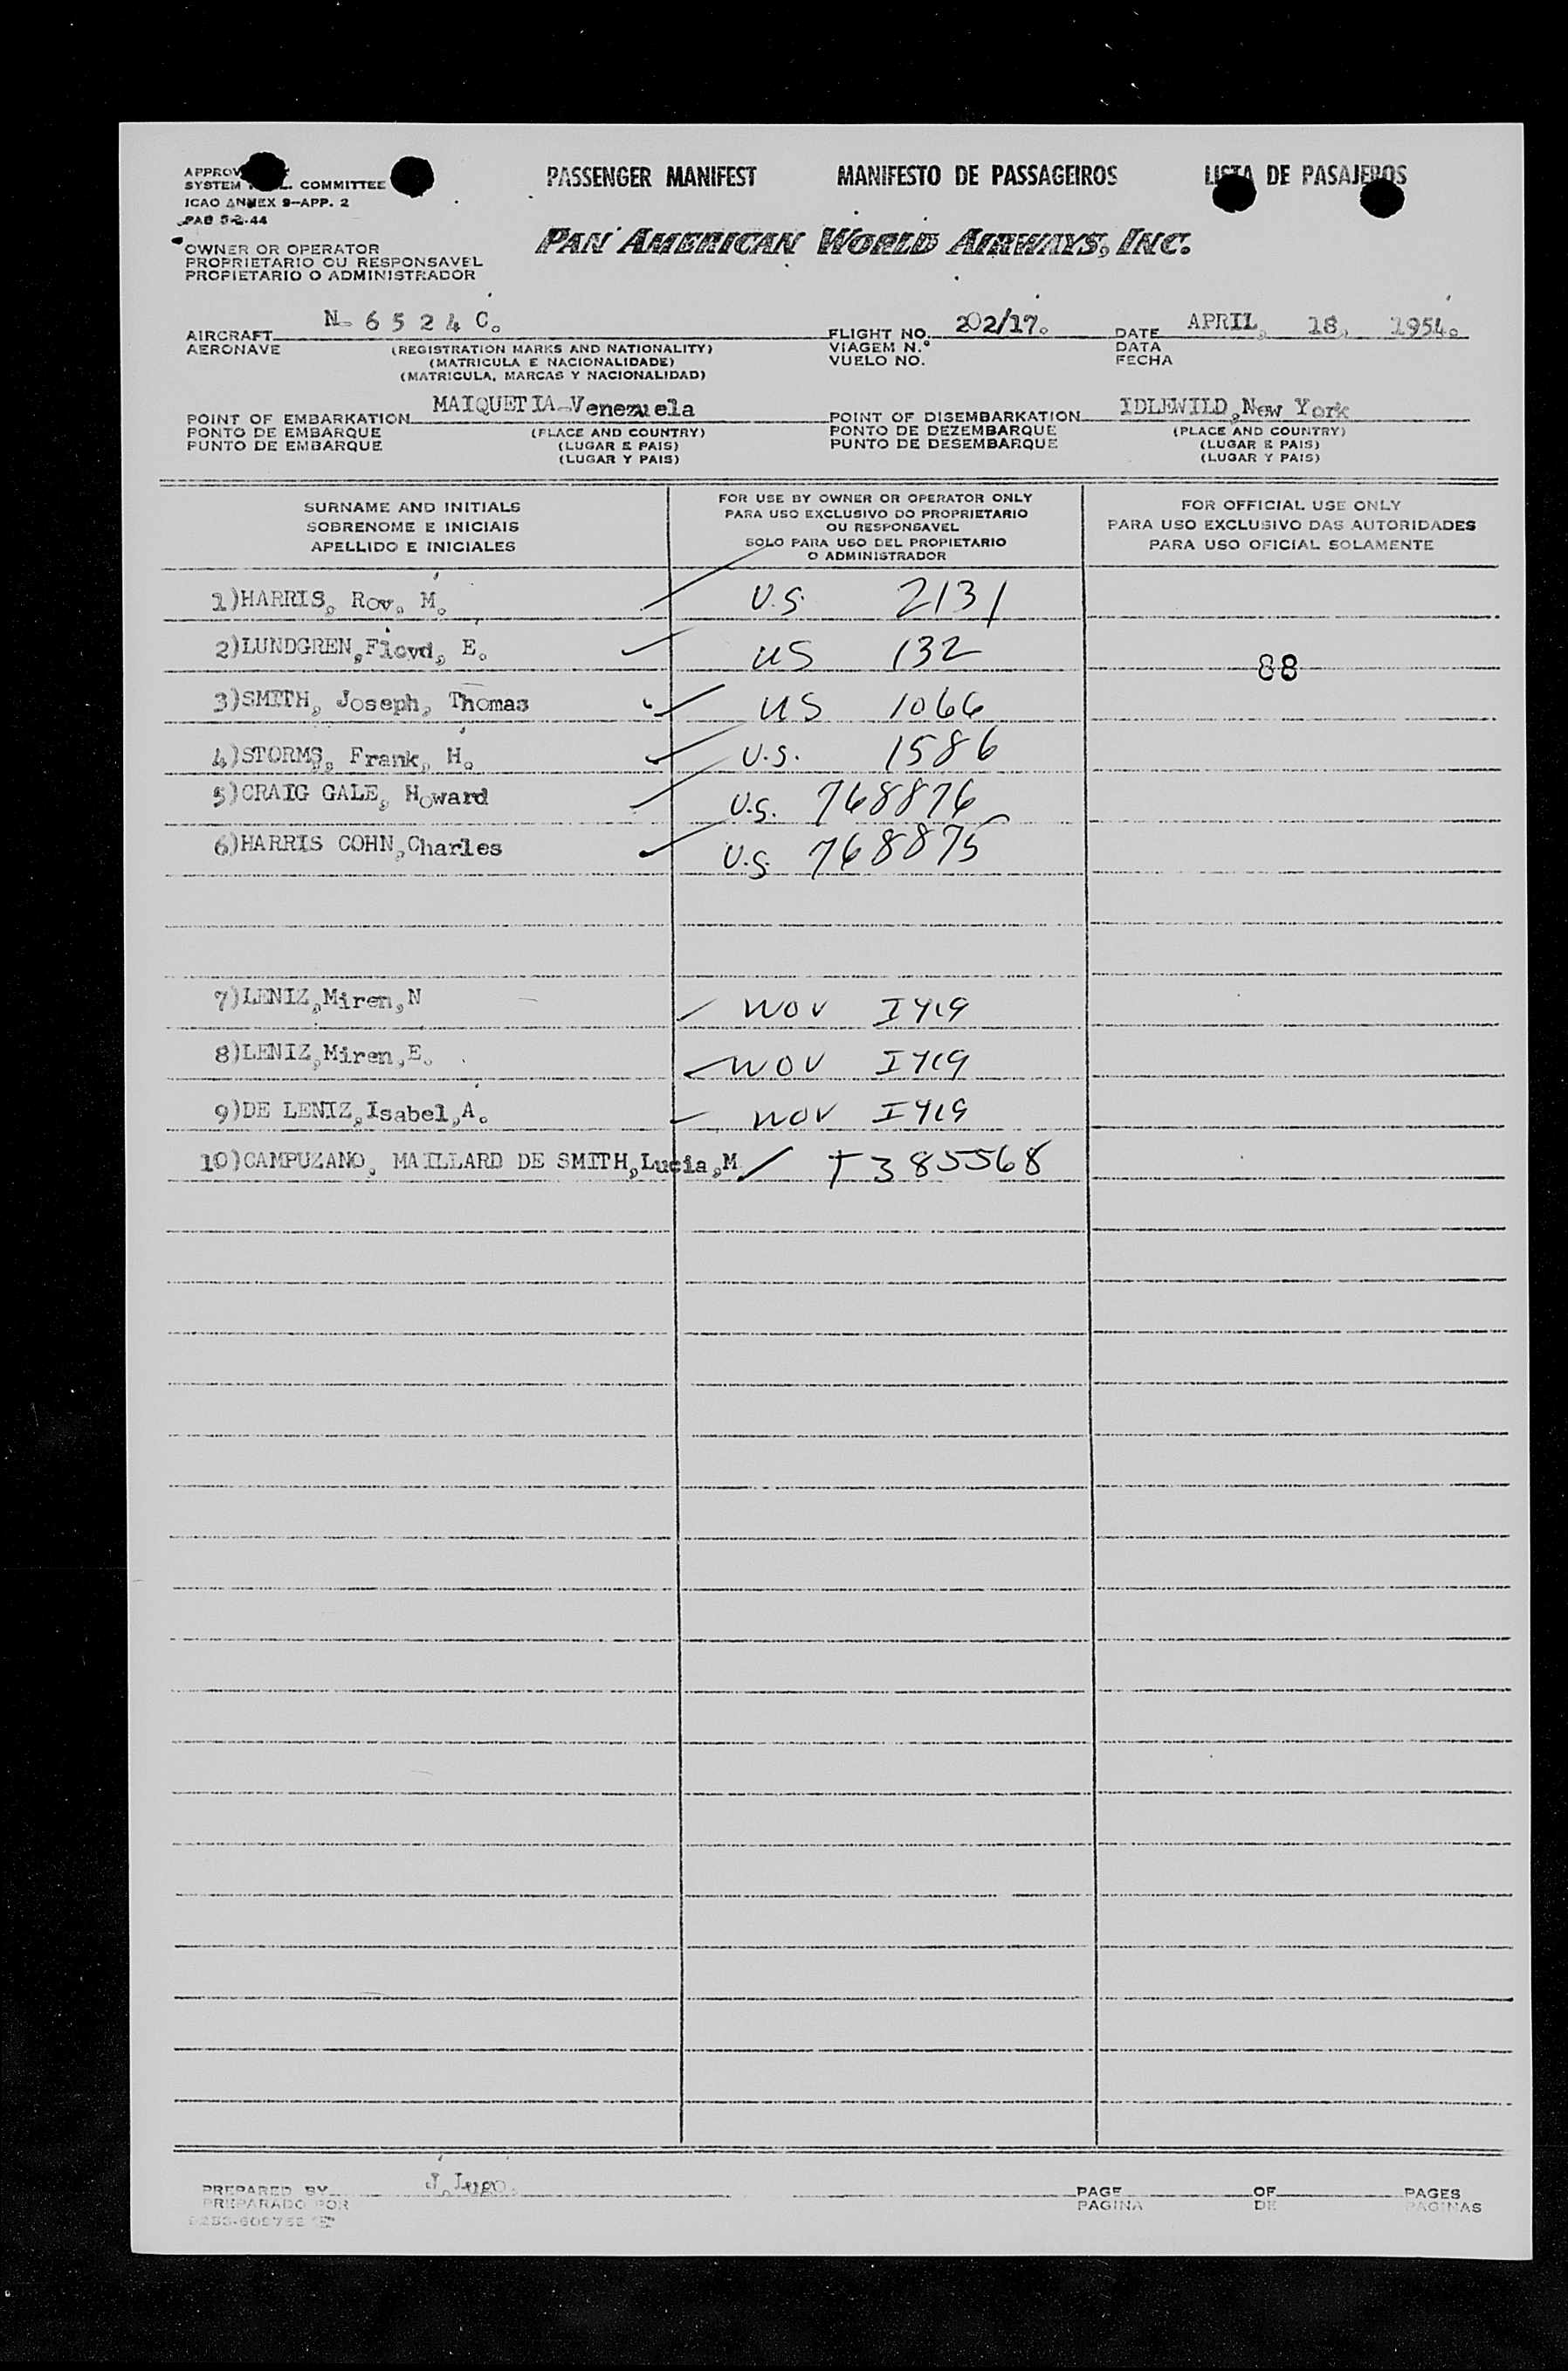 PASSENGER MANIFEST MANIFESTO DE PASSAGEIROS LISTA DE PASAJEROS
SYSTEM COMMITTEE
ICAO ANNEX 9-APP. 2
PAB 5-2-44
PAN AMERICAN WORLD AIRWAYS, INC.
OWNER OR OPERATOR
PROPRIETARIO OU RESPONSAVEL
PROPIETARIO O ADMINISTRADOR
AIRCRAFT N- 6 5 2 4 C. FLIGHT NO. 202/17. DATE APRIL, 18, 1954.
AERONAVE (REGISTRATION MARKS AND NATIONALITY) VIAGEM N.º DATA
(MATRICULA E NACIONALIDADE) VUELO NO. FECHA
(MATRICULA, MARCAS Y NACIONALIDAD)
POINT OF EMBARKATION MAIQUETIA-Venezuela POINT OF DISEMBARKATION IDLEWILD, New York
PONTO DE EMBARQUE (PLACE AND COUNTRY) PONTO DE DEZEMBARQUE (PLACE AND COUNTRY)
PUNTO DE EMBARQUE (LUGAR E PAIS) PUNTO DE DESEMBARQUE (LUGAR E PAIS)
(LUGAR Y PAIS) (LUGAR Y PAIS)
SURNAME AND INITIALS
SOBRENOME E INICIAIS
APELLIDO E INICIALES
FOR USE BY OWNER OR OPERATOR ONLY
PARA USO EXCLUSIVO DO PROPRIETARIO
OU RESPONSAVEL
SOLO PARA USO DEL PROPIETARIO
O ADMINISTRADOR
FOR OFFICIAL USE ONLY
PARA USO EXCLUSIVO DAS AUTORIDADES
PARA USO OFICIAL SOLAMENTE
1)HARRIS, Roy, M. U.S. 2131
2)LUNDGREN,Floyd, E. US 132
88
3)SMITH, Joseph, Thomas US 1066
4)STORMS, Frank, H. U.S. 1586
5)CRAIG GALE, Howard U.S. 768876
6)HARRIS COHN,Charles U.S. 768875
7)LENIZ,Miren,N NOV I419
8)LENIZ,Miren,E. NOV I419
9)DE LENIZ,Isabel,A. NOV I419
10)CAMPUZANO, MAILLARD DE SMITH,Lucia,M T385568
PREPARED BY J.Lugo. PAGE OF PAGES
PREPARADO POR PAGINA DE PAGINAS